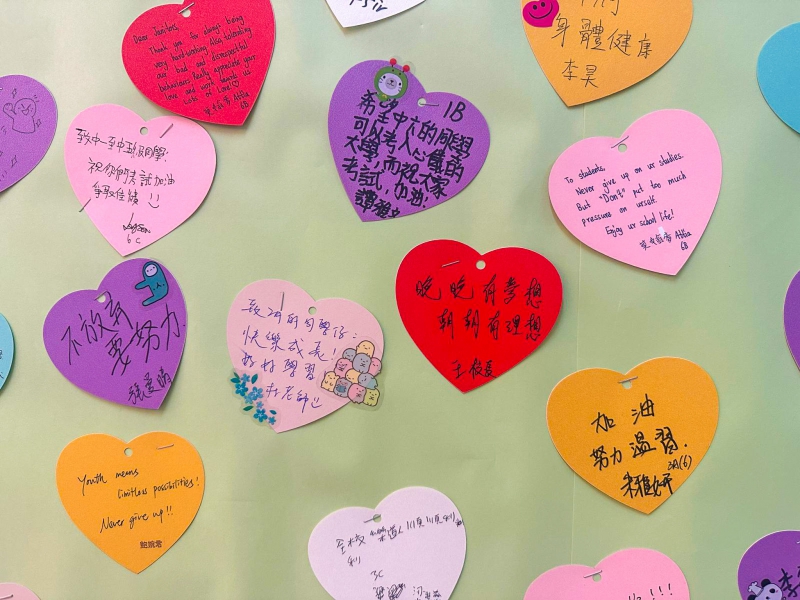 Dear Janitors,
Thank you for always being
very hard-working. Also tolerating
our bad and disrespectful
behaviours. Really appreciate your
love and work towards us.
Lots of Love!
6B
身體健康
李昊
1B
希望
全中六的同學
可以考入心儀的
大學，而祝大家
考試，加油!
致中一至中五級同學:
祝你們考試加油
爭取佳績
6C
To students,
Never give up on ur studies.
But "Don't" put too much
pressure on urself.
Enjoy ur school life!
6B
不放弃
要努力
致2A的同學仔:
快樂成長!
好好學習
杜老師
晚晚有夢想
朝朝有理想
王校長
加油
努力溫習.
3A(6)
朱雅妍
Youth means
limitless possibilities!
Never give up!!
鮑婉君
全校
利
3C
!!!